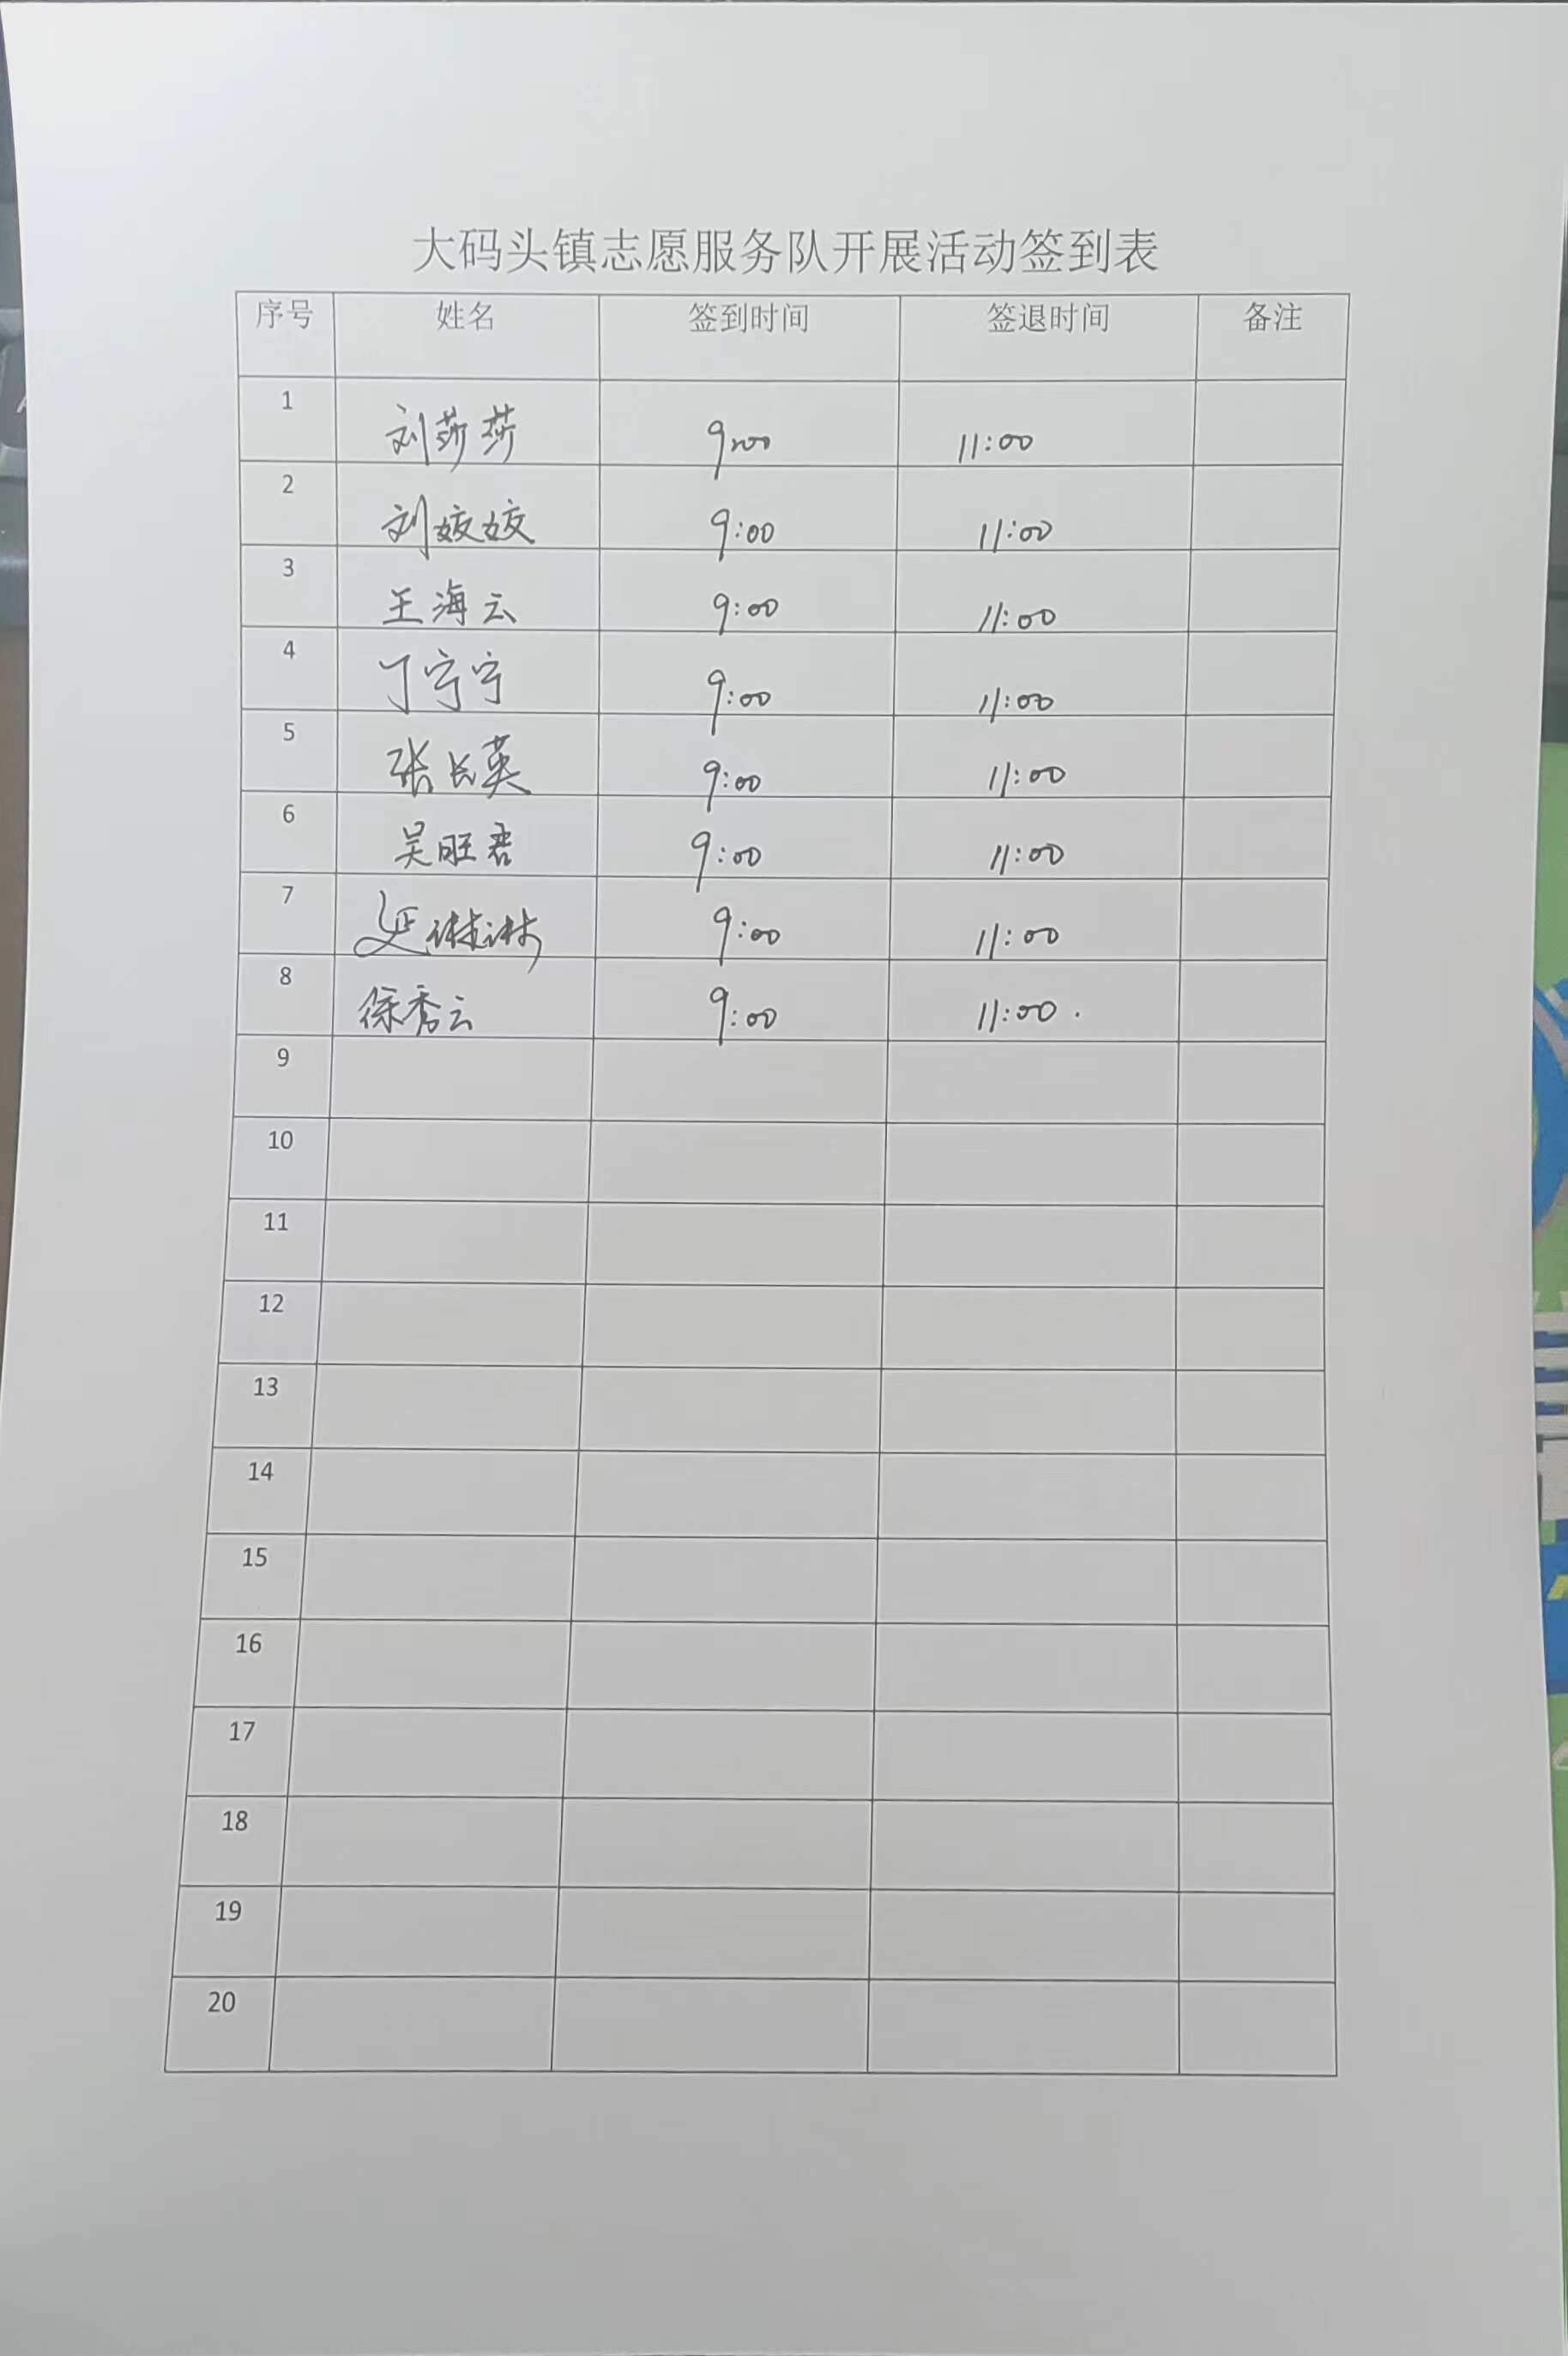 大码头镇志愿服务队开展活动签到表
序号 姓名 签到时间 签退时间 备注
1 刘莎莎 9:00 11:00
2 刘姣姣 9:00 11:00
3 王海云 9:00 11:00
4 丁宁宁 9:00 11:00
5 张长英 9:00 11:00
6 吴旺君 9:00 11:00
7 延淋淋 9:00 11:00
8 徐秀云 9:00 11:00.
9
10
11
12
13
14
15
16
17
18
19
20